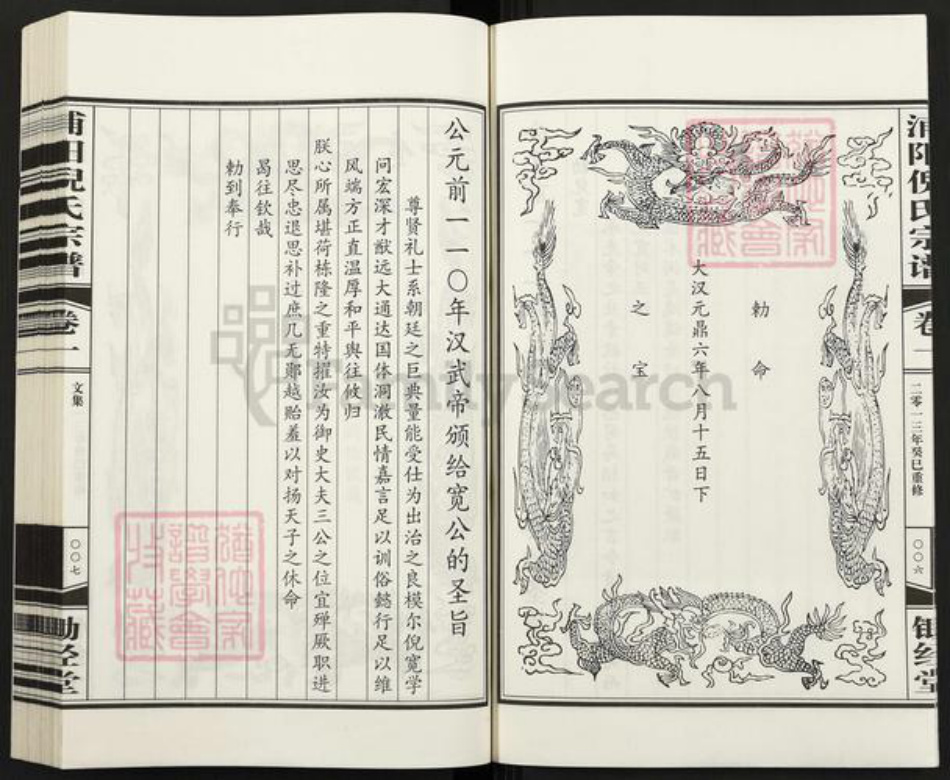 浦阳倪氏宗谱
卷一
二零一三年癸巳重修
〇〇六
锄经堂
勅命
之宝
大汉元鼎六年八月十五日下
公元前一一〇年汉武帝颁给宽公的圣旨
尊贤礼士系朝廷之巨典量能受仕为出治之良模尔倪宽学
问宏深才猷远大通达国体洞澈民情嘉言足以训俗懿行足以维
风端方正直温厚和平舆往攸归
朕心所属堪荷栋隆之重特擢汝为御史大夫三公之位宜殚厥职进
思尽忠退思补过庶几无鄙越贻羞以对扬天子之休命
曷往钦哉
勅到奉行
浦阳倪氏宗谱
卷一
文集
〇〇七
锄经堂
familysearch